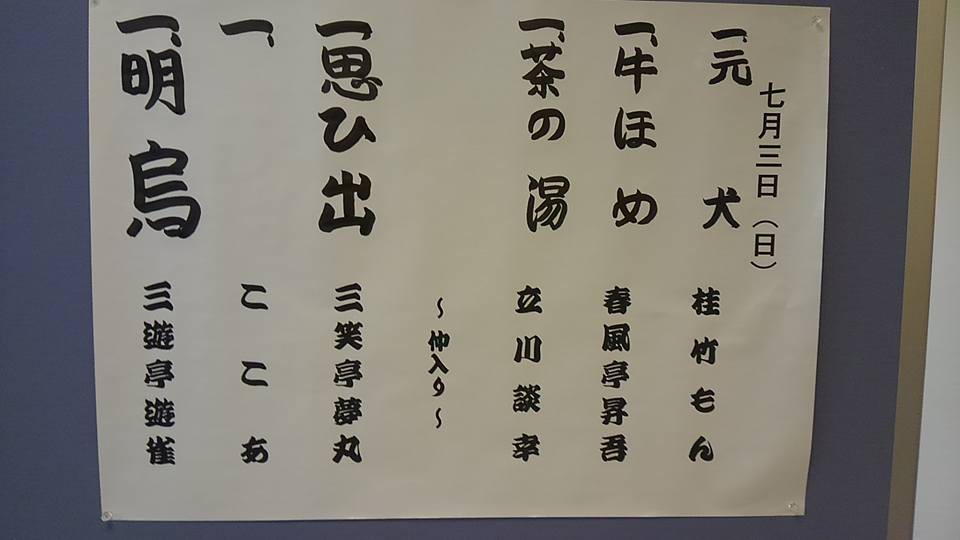 七月三日(日)
一、元犬 桂竹もん
一、牛ほめ 春風亭昇吾
一、茶の湯 立川談幸
～仲入り～
一、思ひ出 三笑亭夢丸
一、 ここあ
一、明烏 三遊亭遊雀